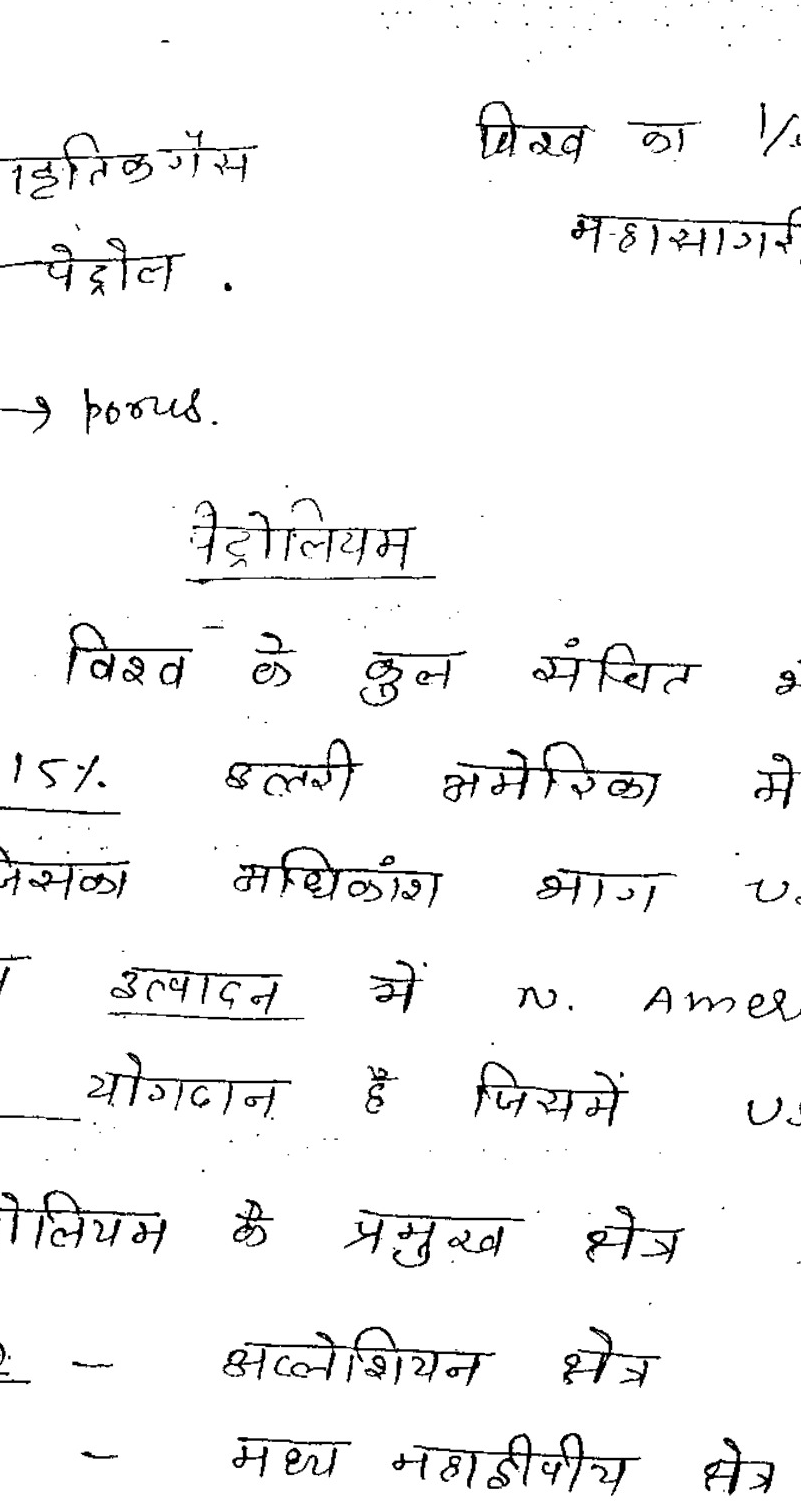 विश्व का
प्राकृतिक गैस
महासागरी
पेट्रोल .
→ porus.
पेट्रोलियम
विश्व के कुल संचित
15% उत्तरी अमेरिका में
जिसका अधिकांश भाग U.
उत्पादन में N. Amer
योगदान है जिसमें US
ोलियम के प्रमुख क्षेत्र
- अप्लेशियन क्षेत्र
- मध्य महाद्वीपीय क्षेत्र